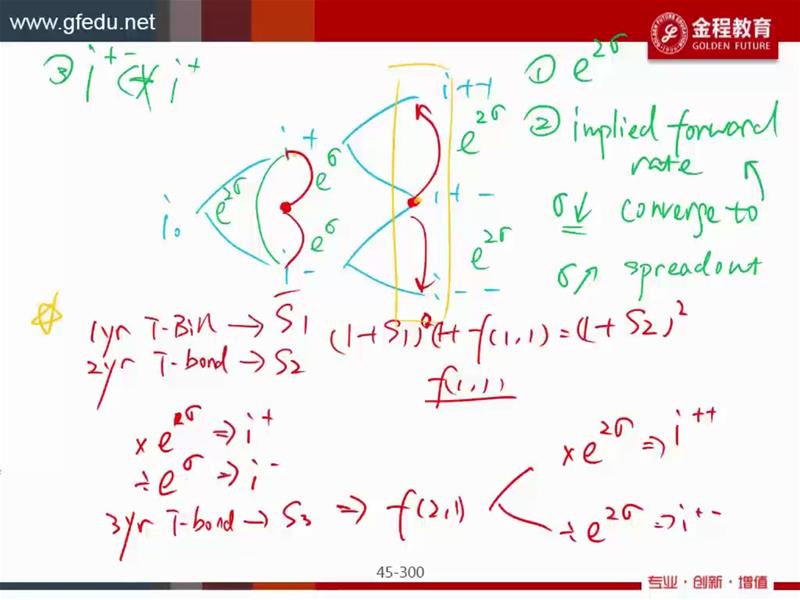 www.gfedu.net
金程教育
GOLDEN FUTURE
③ i⁺⁻ i⁺
① e^2σ
② implied forward
rate
σ↓ converge to
σ↗ spreadout
i++
e^2σ
i+
e^σ
e^2σ
i₀
i+-
e^σ
e^2σ
i-
i--
1yr T-Bill → S1
(1+S1)(1+f(1,1)=(1+S2)²
2yr T-bond → S2
f(1,1)
×e^2σ ⇒ i+
÷e^σ ⇒ i-
×e^2σ ⇒ i++
3yr T-bond → S3 ⇒ f(2,1)
÷e^2σ ⇒ i+-
45-300
专业·创新·增值